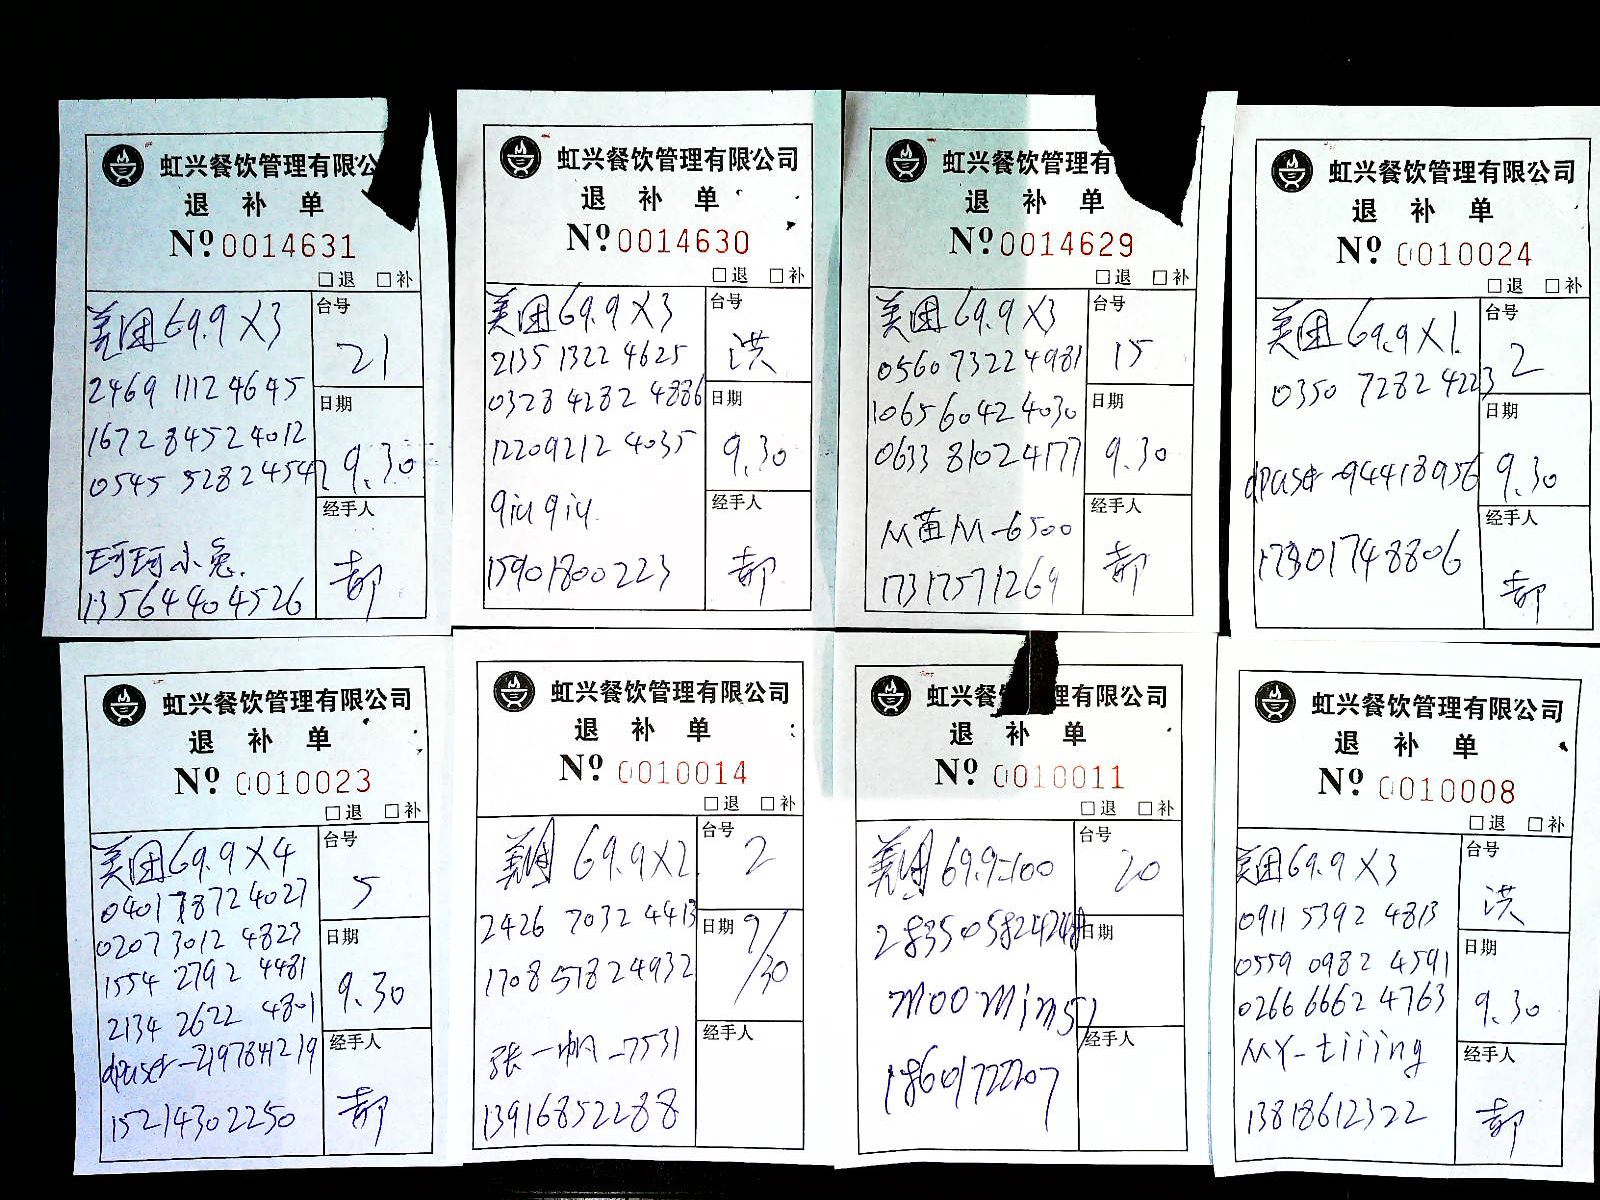 虹兴餐饮管理有限公
退 补 单
Nº 0014631
□退 □补
美团69.9X3
台号
21
2469 1112 4645
1672 8452 4012
0545 5282 4542
日期
9.30
珂珂小兔.
13564404526
经手人
郝
虹兴餐饮管理有限公司
退 补 单
Nº 0014630
□退 □补
美团69.9X3
台号
洪
2135 1322 4625
0328 4282 4886
1220 9212 4035
日期
9.30
qiuqiu
15901800223
经手人
郝
虹兴餐饮管理有限公司
退 补 单
Nº 0014629
□退 □补
美团69.9X3
台号
15
0560 7322 4981
1065 6042 4030
0633 8102 4177
日期
9.30
从苗从-6500
17317571269
经手人
郝
虹兴餐饮管理有限公司
退 补 单
Nº 0010024
□退 □补
美团69.9X1.
台号
2
0350 7282 4223
日期
9.30
dpuser-94418956
17301748806
经手人
郝
虹兴餐饮管理有限公司
退 补 单
Nº 0010023
□退 □补
美团69.9X4
台号
5
0401 7872 4027
0207 3012 4823
1554 2792 4481
2134 2622 4801
日期
9.30
dpuser-2197841219
15214302250
经手人
郝
虹兴餐饮管理有限公司
退 补 单
Nº 0010014
□退 □补
美团 69.9X2
台号
2
2426 7032 4413
1708 5182 4932
日期
9/30
张一帆-7531
13916852288
经手人
虹兴餐 管理有限公司
退 补 单
Nº 0010011
□退 □补
美团69.9-100
台号
20
日期
moomins)
18601722207
经手人
虹兴餐饮管理有限公司
退 补 单
Nº 0010008
□退 □补
美团69.9X3
台号
洪
0911 5392 4813
0559 0982 4591
0266 6662 4763
日期
9.30
MY-tiiing
13818612322
经手人
郝